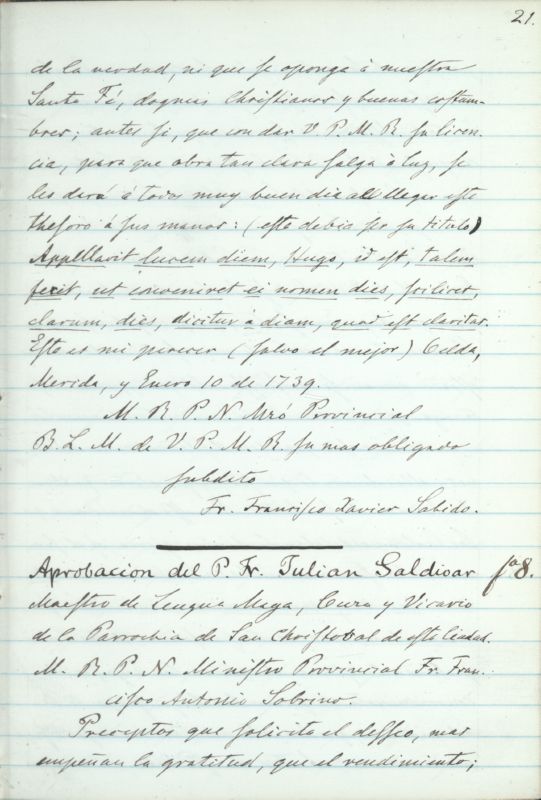 21.
de la verdad, ni que se oponga à nuestra
Santa Fé, dogmas Christianos y buenas costum-
bres; antes si, que con dar V. P. M. R. su licen-
cia, para que obra tan clara salga à luz, se
les dará à todos muy buen dia al llegar este
thesoro à sus manos: (este debia ser su titulo)
Appellavit lucem diem, Hugo, id est, talem
fecit, ut conveniret ei nomen dies, scilicet,
clarum, dies, dicitur à diam, quod est claritas.
Este es mi parecer (salvo el mejor) Celda,
Merida, y Enero 10 de 1739.
M. R. P. N. Mró Provincial
B. L. M. de V. P. M. R. su mas obligado
subdito
Fr. Francisco Xavier Sabido.
Aprobacion del P. Fr. Julian Galdioar fa 8.
Maestro de Lengua Maya, Cura y Vicario
de la Parrochia de San Christobal de esta Ciudad.
M. R. P. N. Ministro Provincial Fr. Fran-
cisco Antonio Sobrino.
Preceptos que solicita el desseo, mas
empeñan la gratitud, que el rendimiento;